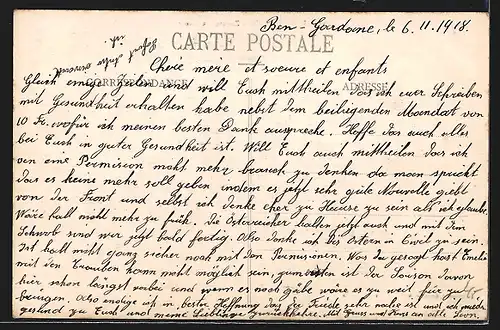 Ben-Gardane, le 6.11.1918.
CARTE POSTALE
Chère mère et soeure et enfants
CORRESPONDANCE
ADRESSE
Gleich einige Zeilen und will Euch mittheilen das ich euer Schreiben
mit Gesundheit erhalten habe nebst dem beiligenden Mandat von
10 Fr. wofür ich meinen besten Dank ausspreche. Hoffe das auch alles
bei Euch in guter Gesundheit ist. Will Euch auch mittheilen das ich
an eine Permision nicht mehr brauch zu denken da man spricht
das es keine mehr soll geben indem es jetzt sehr gute Nouvelle giebt
von der Front und selbst ich denke eher zu Hause zu sein als ich glaube.
Wäre halt nicht mehr zu früh. Die Österreicher halten jetzt auch und mit dem
Schwob sind wir jetzt bald fertig. Also denke ich bis Ostern in Civil zu sein.
Ist halt nicht ganz sicher noch mit den Permissionen. Was du gesagt hast Emelie
mit den Trauben kann nicht möglich sein, den ist der Saison davon
hier schon längst vorbei und wenn es noch gäbe wäre es zu weit für zu
bringen. Also endige ich in bester Hoffnung das der Friede sehr nahe ist und ich wieder
gesund zu Euch und meine Lieblinge zurückkehre. Mit Gruss und Kuss an alle Leon.